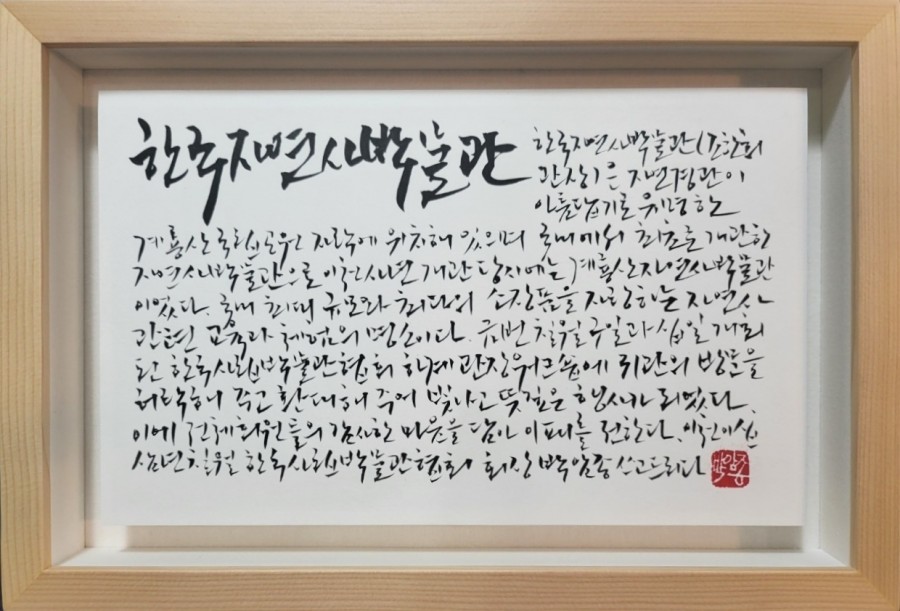 한국자연사박물관
한국자연사박물관(조한희
관장)은 자연경관이
아름답기로 유명한
계룡산 국립공원 자락에 위치해 있으며 국내에서 최초로 개관한
자연사박물관으로 이천사년 개관 당시에는 계룡산자연사박물관
이었다. 국내 최대 규모와 최다의 소장품을 자랑하는 자연사
관련 교육과 체험의 명소이다. 금번 칠월 구일과 십일 개최
된 한국사립박물관협회 하계 관장워크숍에 귀관의 방문을
허락해 주고 환대해 주어 빛나고 뜻깊은 행사가 되었다.
이에 전체회원들의 감사한 마음을 담아 이 패를 전한다. 이천이십
삼년 칠월 한국사립박물관협회 회장 박암종 쓰고드리다
박암종